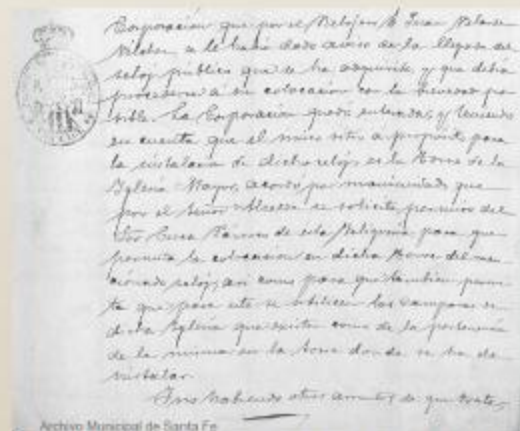 Corporación que por el Relojero D. Juan
se le había dado aviso de la llegada del
reloj público que se ha adquirido, y que debía
procederse a su colocación con la brevedad po-
sible. La Corporación quedó enterada, y teniendo
en cuenta que el único sitio a propósito para
la instalación de dicho reloj es la torre de la
Iglesia Mayor, acordó por unanimidad que
por el Señor Alcalde se solicite permiso del
Sor Cura Párroco de esta para que
permita la colocación en dicha torre del men-
cionado reloj, así como para que también permi-
ta que para este se utilicen las campanas de
dicha Iglesia que existen como de la pertenencia
de la misma en la torre donde se ha de
instalar.
Y no habiendo otros asuntos de que tratar,
Archivo Municipal de Santa Fe